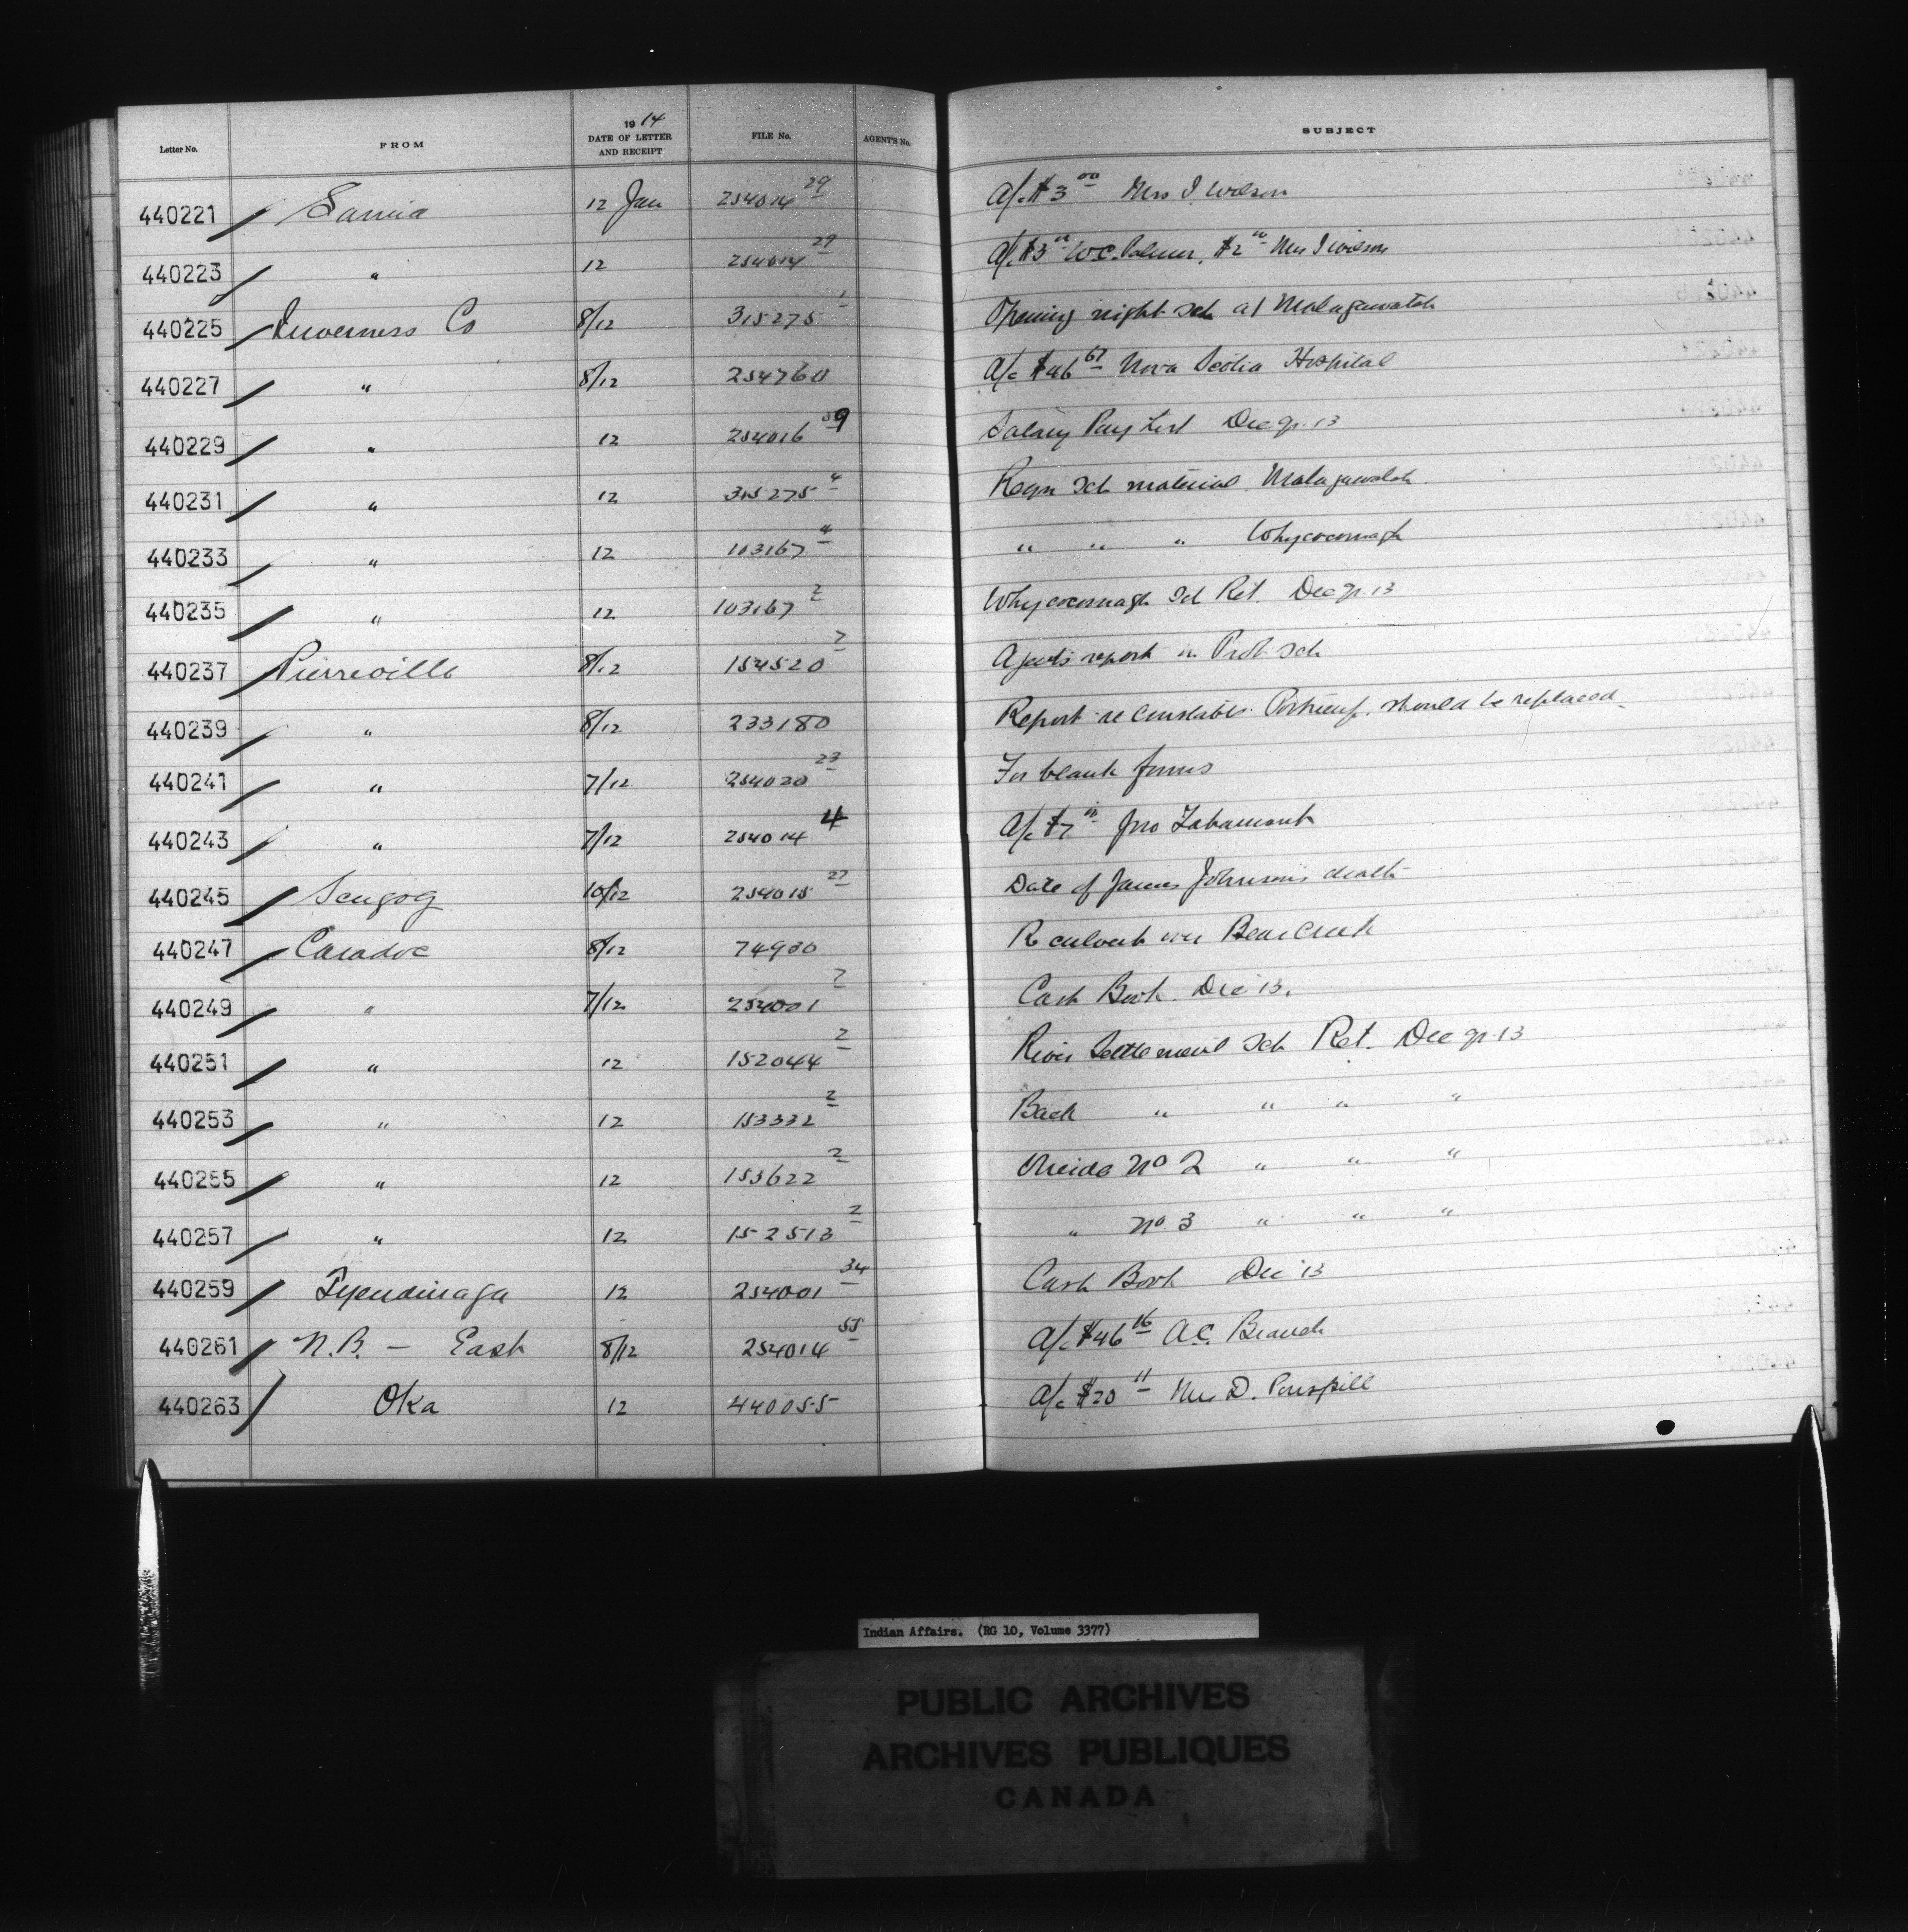 Letter No. FROM 1914 DATE OF LETTER AND RECEIPT FILE No. AGENT'S No. SUBJECT
440221 Sarnia 12 Jan 254014 29 A/c $3 00 Mrs I. Wilson
440223 " 12 254014 29 A/c $3 00 W.C. Palmer, $2 00 Mrs I Wilson
440225 Inverness Co 8/12 315275 1 Opening night sch at Malagawatch
440227 " 8/12 254760 A/c $46 67 Nova Scotia Hospital
440229 " 12 254016 59 Salary Pay List Dec qr. 13
440231 " 12 315275 4 Reqn Sch material Malagawatch
440233 " 12 103167 4 " " " Whycocomagh
440235 " 12 103167 2 Whycocomagh Sch Ret. Dec qr. 13
440237 Pierreville 8/12 154520 7 Agents report re Prot. Sch
440239 " 8/12 233180 Report re Constables should be replaced
440241 " 7/12 254020 23 For blank forms
440243 " 7/12 254014 4 A/c $7 00 Jno
440245 Scugog 10/12 254015 27 Date of James Johnson's death
440247 Caradoc 8/12 74900 Re culvert over Bear Creek
440249 " 7/12 254001 7 Cash Book Dec 13.
440251 " 12 152044 2 River Settlement Sch Ret. Dec qr. 13
440253 " 12 153332 2 Back " " " "
440255 " 12 153622 2 Oneida No 2 " " "
440257 " 12 152513 2 " No 3 " " "
440259 Tyendinaga 12 254001 34 Cash Book Dec '13
440261 N.B. – East 8/12 254014 55 A/c $46 16 A.C. Branch
440263 Oka 12 440055 A/c $20 11 D.
Indian Affairs. (RG 10, Volume 3377)
PUBLIC ARCHIVES
ARCHIVES PUBLIQUES
CANADA